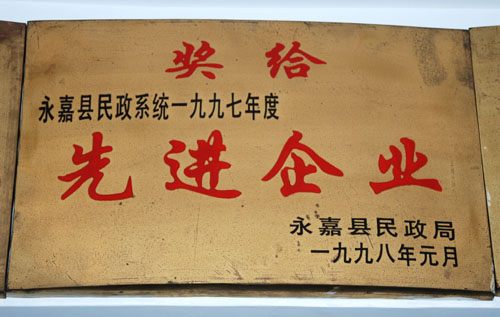 奖给
永嘉县民政系统一九九七年度
先进企业
永嘉县民政局
一九九八年元月